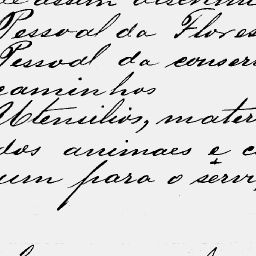 Pessoal da Flores
Pessoal da conser
caminhos
Utensilios, mater
dos animaes e c
um para o servi